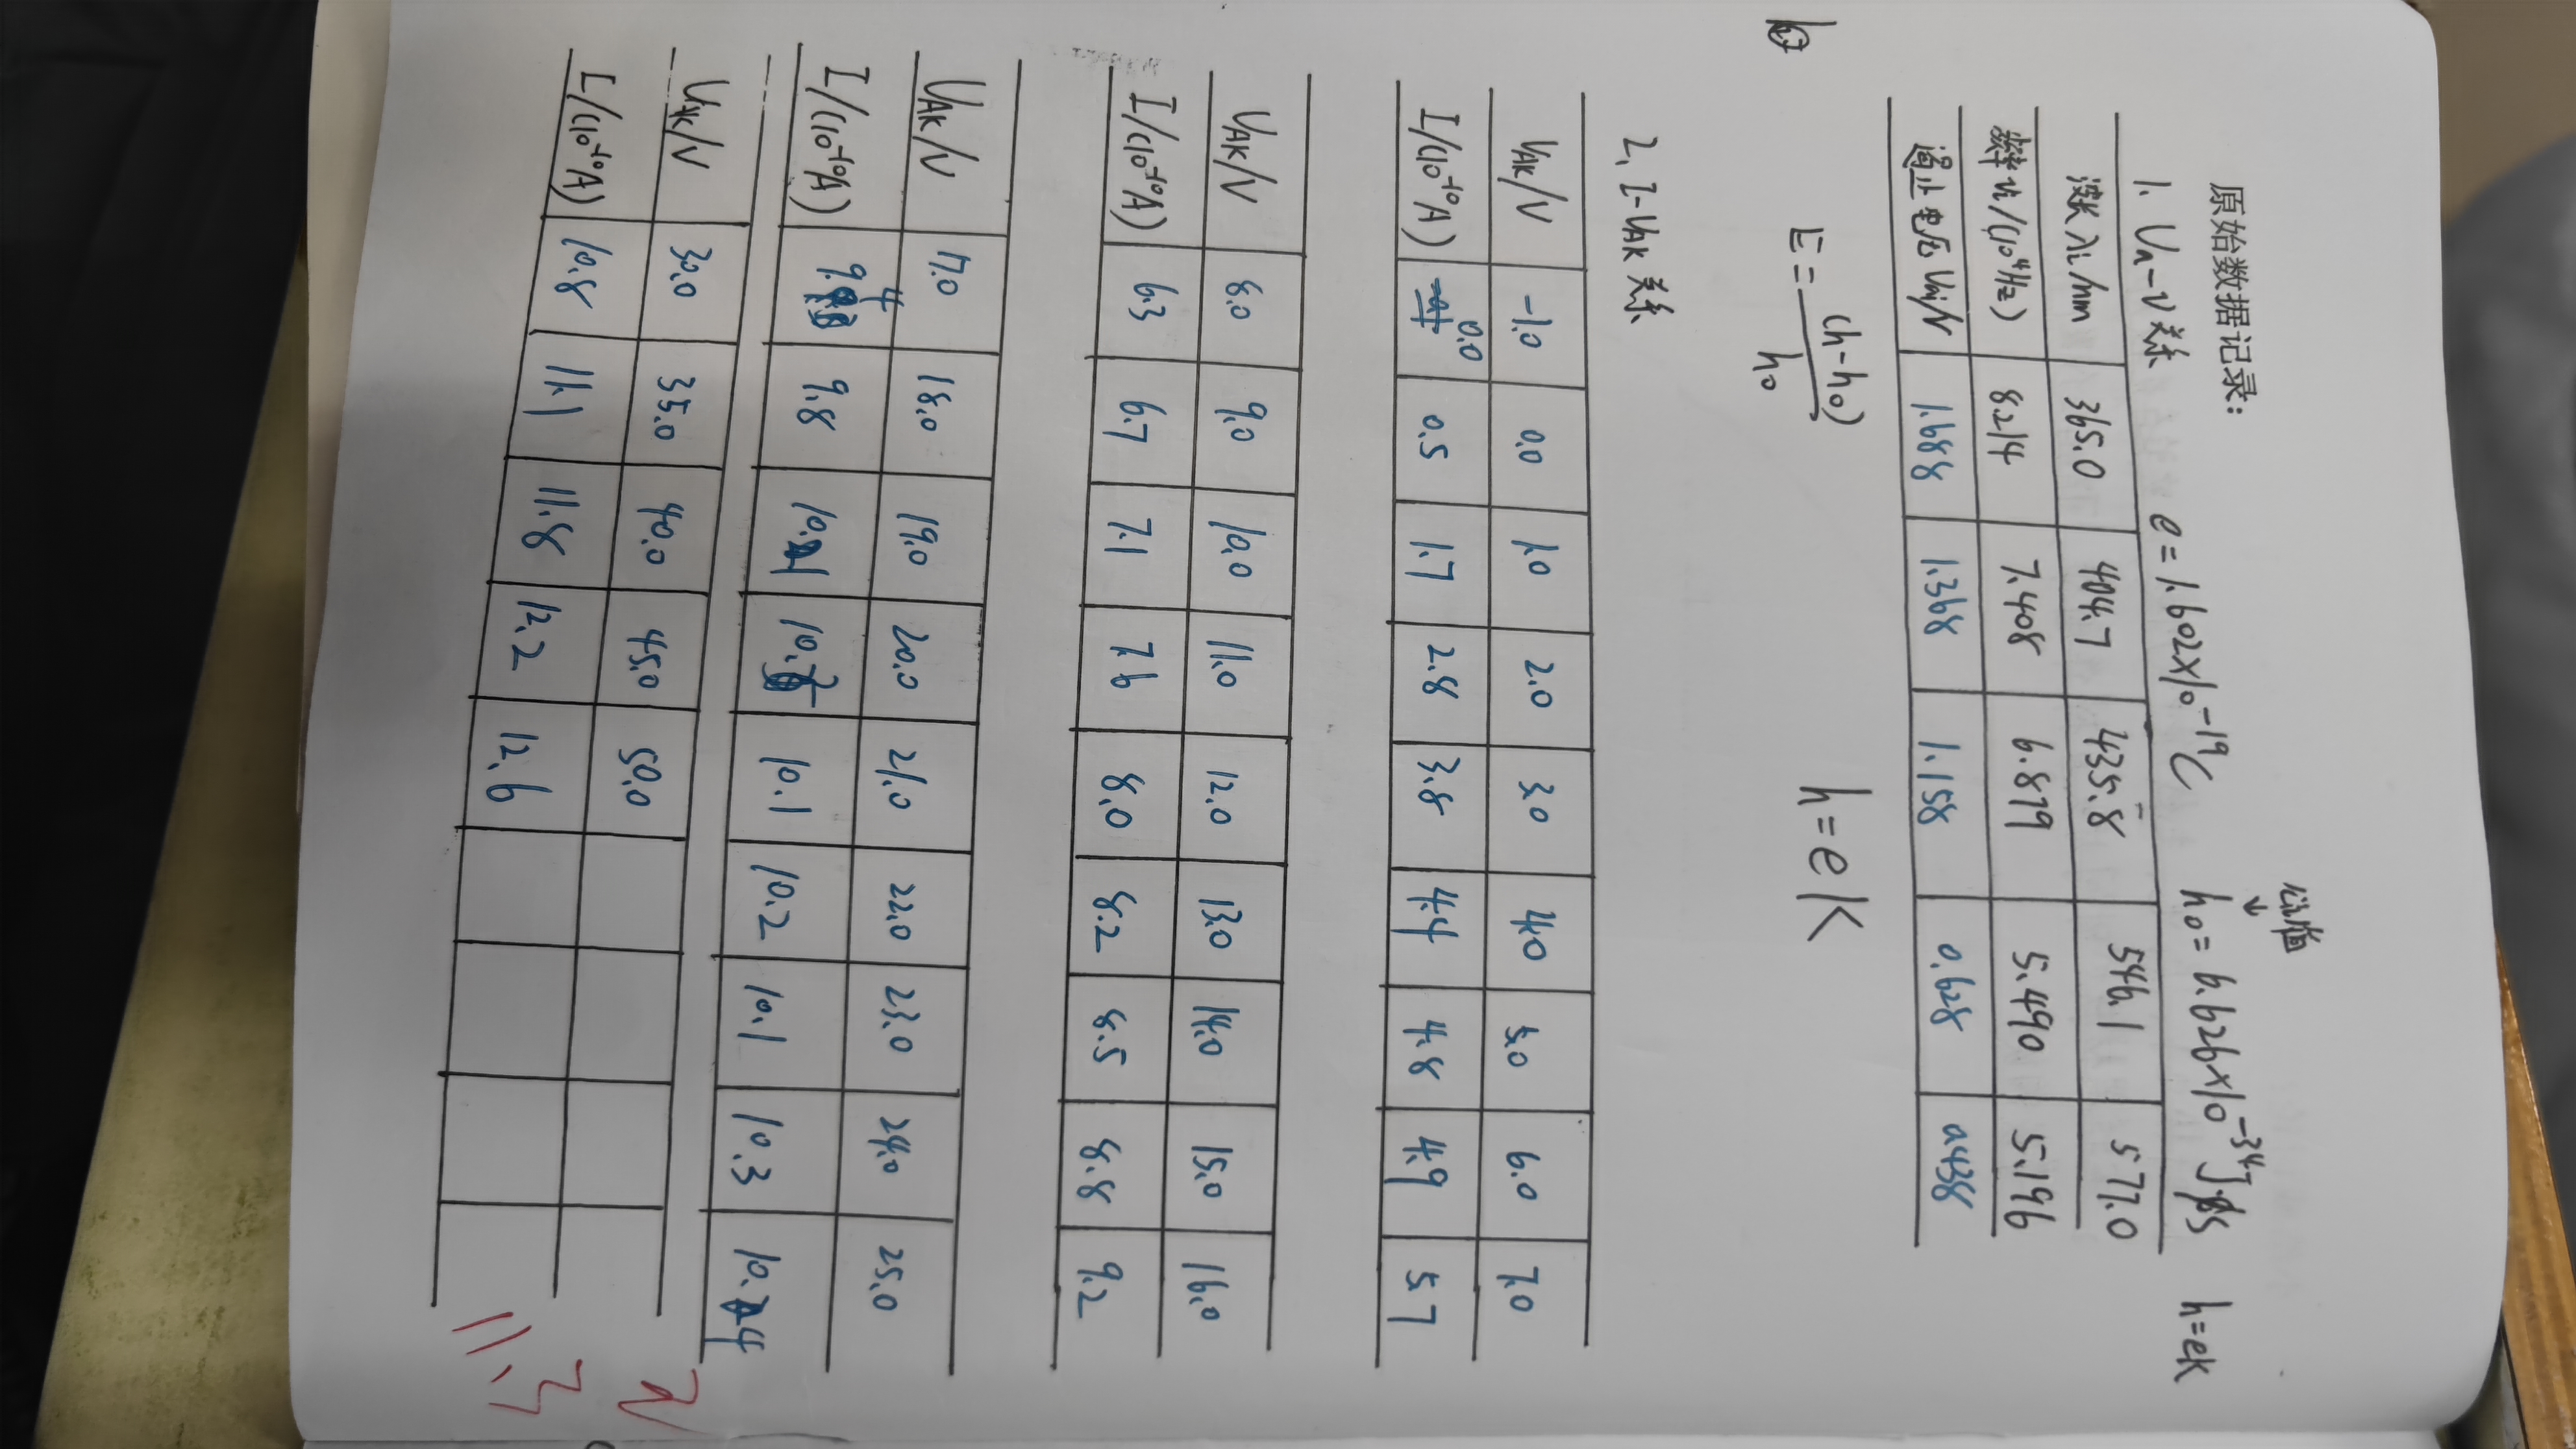 公认值
↓
原始数据记录:
e=1.602×10⁻¹⁹C h₀=6.626×10⁻³⁴J·s h=eK
1. Ua-ν关系
波长λi/nm 365.0 404.7 435.8 546.1 577.0
频率νi/(10⁴Hz) 8.214 7.408 6.879 5.490 5.196
遏止电压Uai/V 1.688 1.368 1.158 0.628 0.438
E=(h-h₀)/h₀ h=eK
2. I-UAK关系
UAK/V -1.0 0.0 1.0 2.0 3.0 4.0 5.0 6.0 7.0
I/(10⁻¹⁰A) 0.0 0.5 1.7 2.8 3.8 4.4 4.8 4.9 5.7
UAK/V 8.0 9.0 10.0 11.0 12.0 13.0 14.0 15.0 16.0
I/(10⁻¹⁰A) 6.3 6.7 7.1 7.6 8.0 8.2 8.5 8.8 9.2
UAK/V 17.0 18.0 19.0 20.0 21.0 22.0 23.0 24.0 25.0
I/(10⁻¹⁰A) 9.4 9.8 10.1 10.2 10.1 10.2 10.1 10.3 10.4
UAK/V 30.0 35.0 40.0 45.0 50.0
I/(10⁻¹⁰A) 10.8 11.1 11.8 12.2 12.6
11.3